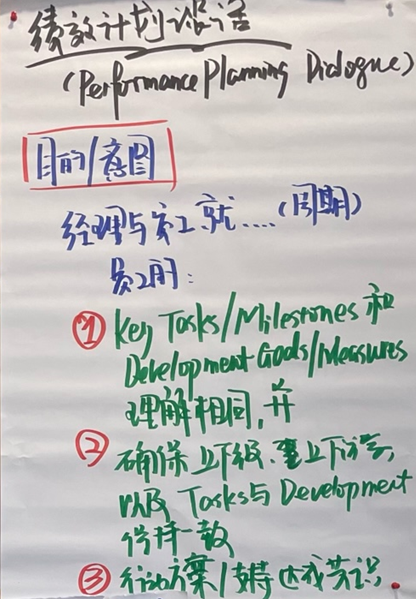 绩效计划谈话
(Performance Planning Dialogue)
目的/意图
经理与员工就....(周期)
员工的:
① Key Tasks/Milestones 和
Development Goals/Measures
理解相同,并
② 确保上下级、上下
以及 Tasks与Development
保持一致
③ 行动方案/支持达成共识